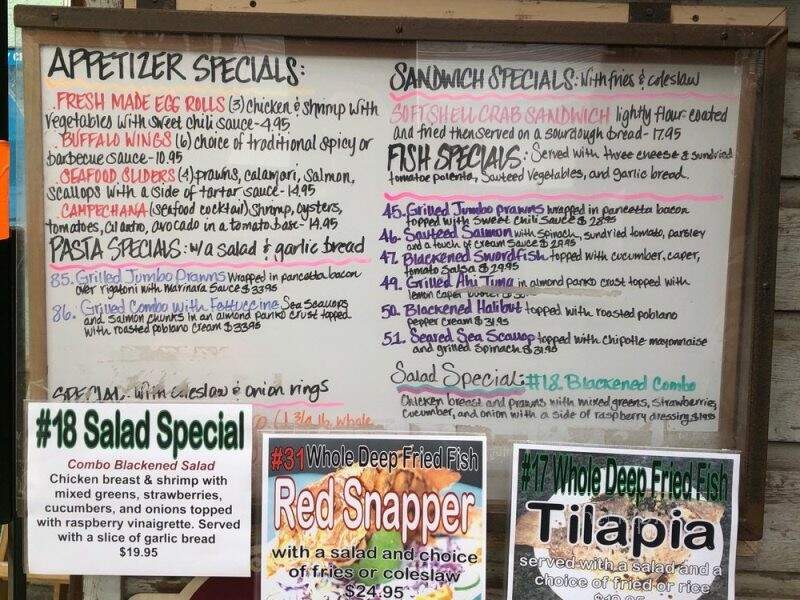 APPETIZER SPECIALS:
FRESH MADE EGG ROLLS (3) chicken & shrimp with
vegetables with sweet chili sauce - 4.95
BUFFALO WINGS (6) choice of traditional spicy or
barbecue sauce - 10.95
SEAFOOD SLIDERS (4) prawns, calamari, salmon,
scallops with a side of tartar sauce - 14.95
CAMPECHANA (seafood cocktail) shrimp, oysters,
tomatoes, cilantro, avocado in a tomato base - 14.95
PASTA SPECIALS: w/a salad & garlic bread
85. Grilled Jumbo Prawns wrapped in pancetta bacon
over rigatoni with marinara sauce $33.95
86. Grilled Combo with Fettuccine Sea Scallops
and Salmon chunks in an almond panko crust topped
with roasted poblano cream $33.95
SPECIAL: with coleslaw & onion rings
(1 3/4 lb. whole
SANDWICH SPECIALS: with fries & coleslaw
SOFT SHELL CRAB SANDWICH lightly flour coated
and fried then served on a sourdough bread - 17.95
FISH SPECIALS: Served with three cheese & sundried
tomatoe polenta, sauteed vegetables, and garlic bread.
45. Grilled Jumbo prawns wrapped in pancetta bacon
topped with sweet chili sauce $ 28.95
46. Sauteed Salmon with spinach, sundried tomato, parsley
and a touch of cream sauce $ 29.95
47. Blackened Swordfish topped with cucumber, caper,
tomato salsa $ 29.95
49. Grilled Ahi Tuna in almond panko crust topped with
lemon caper
50. Blackened Halibut topped with roasted poblano
pepper cream $ 31.95
51. Seared Sea Scallop topped with chipotle mayonnaise
and grilled spinach $ 31.95
Salad Special: #18 Blackened Combo
Chicken breast and prawns with mixed greens, strawberries,
cucumber, and onion with a side of raspberry dressing $19.95
#18 Salad Special
Combo Blackened Salad
Chicken breast & shrimp with
mixed greens, strawberries,
cucumbers, and onions topped
with raspberry vinaigrette. Served
with a slice of garlic bread
$19.95
#31 Whole Deep Fried Fish
Red Snapper
with a salad and choice
of fries or coleslaw
$24.95
#17 Whole Deep Fried Fish
Tilapia
served with a salad and a
choice of fried or rice